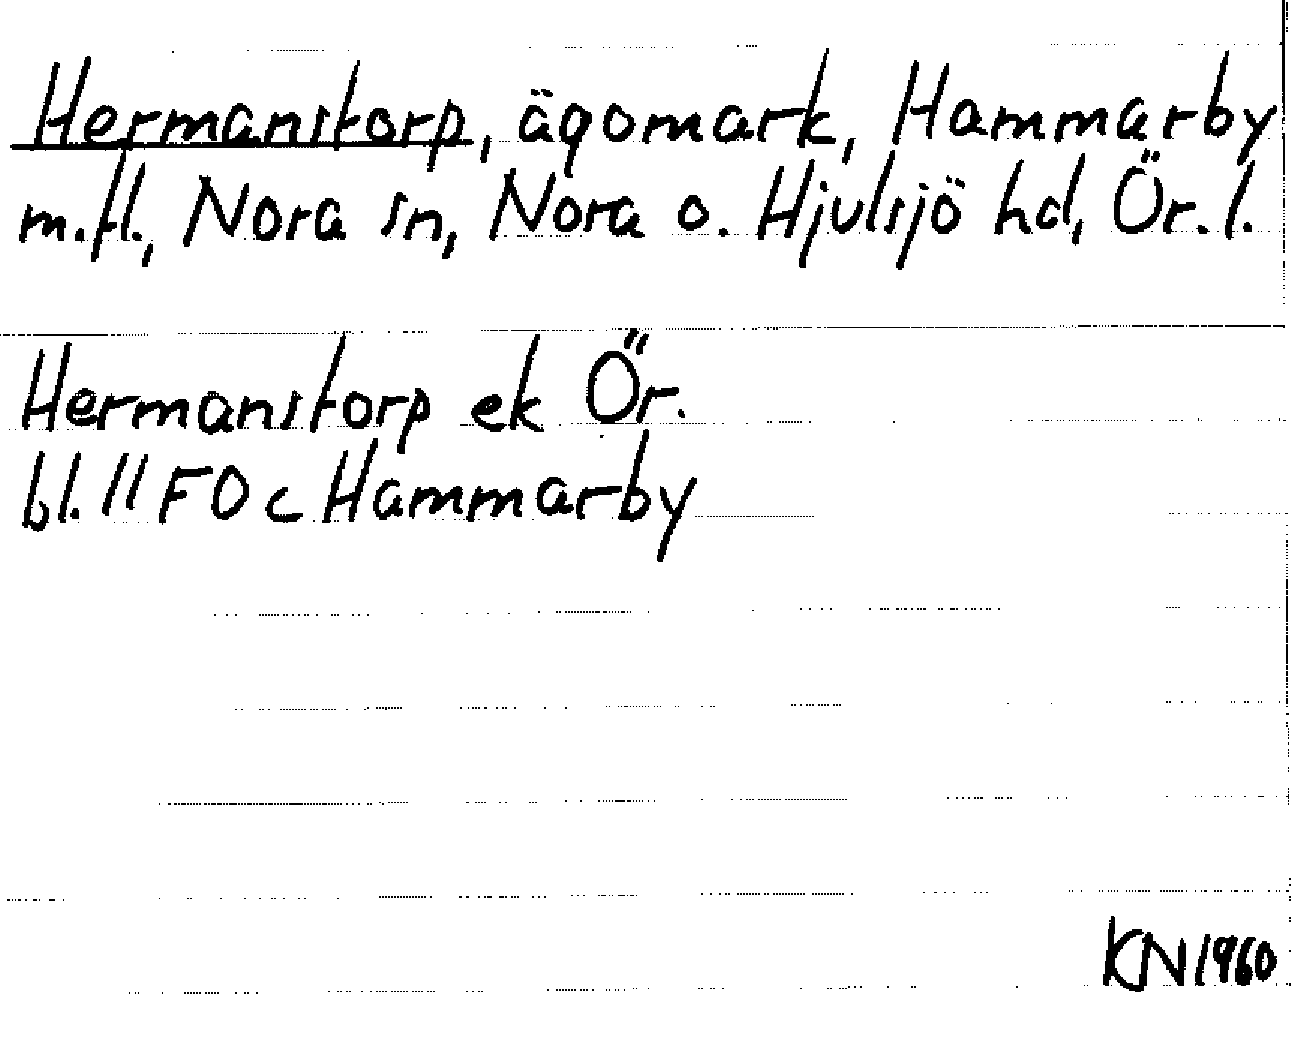 Hermanstorp, ägomark, Hammarby
m.fl., Nora sn, Nora o. Hjulsjö hd, Ör. l.
Hermanstorp ek Ör.
bl. 11 F 0 c Hammarby
KN 1960